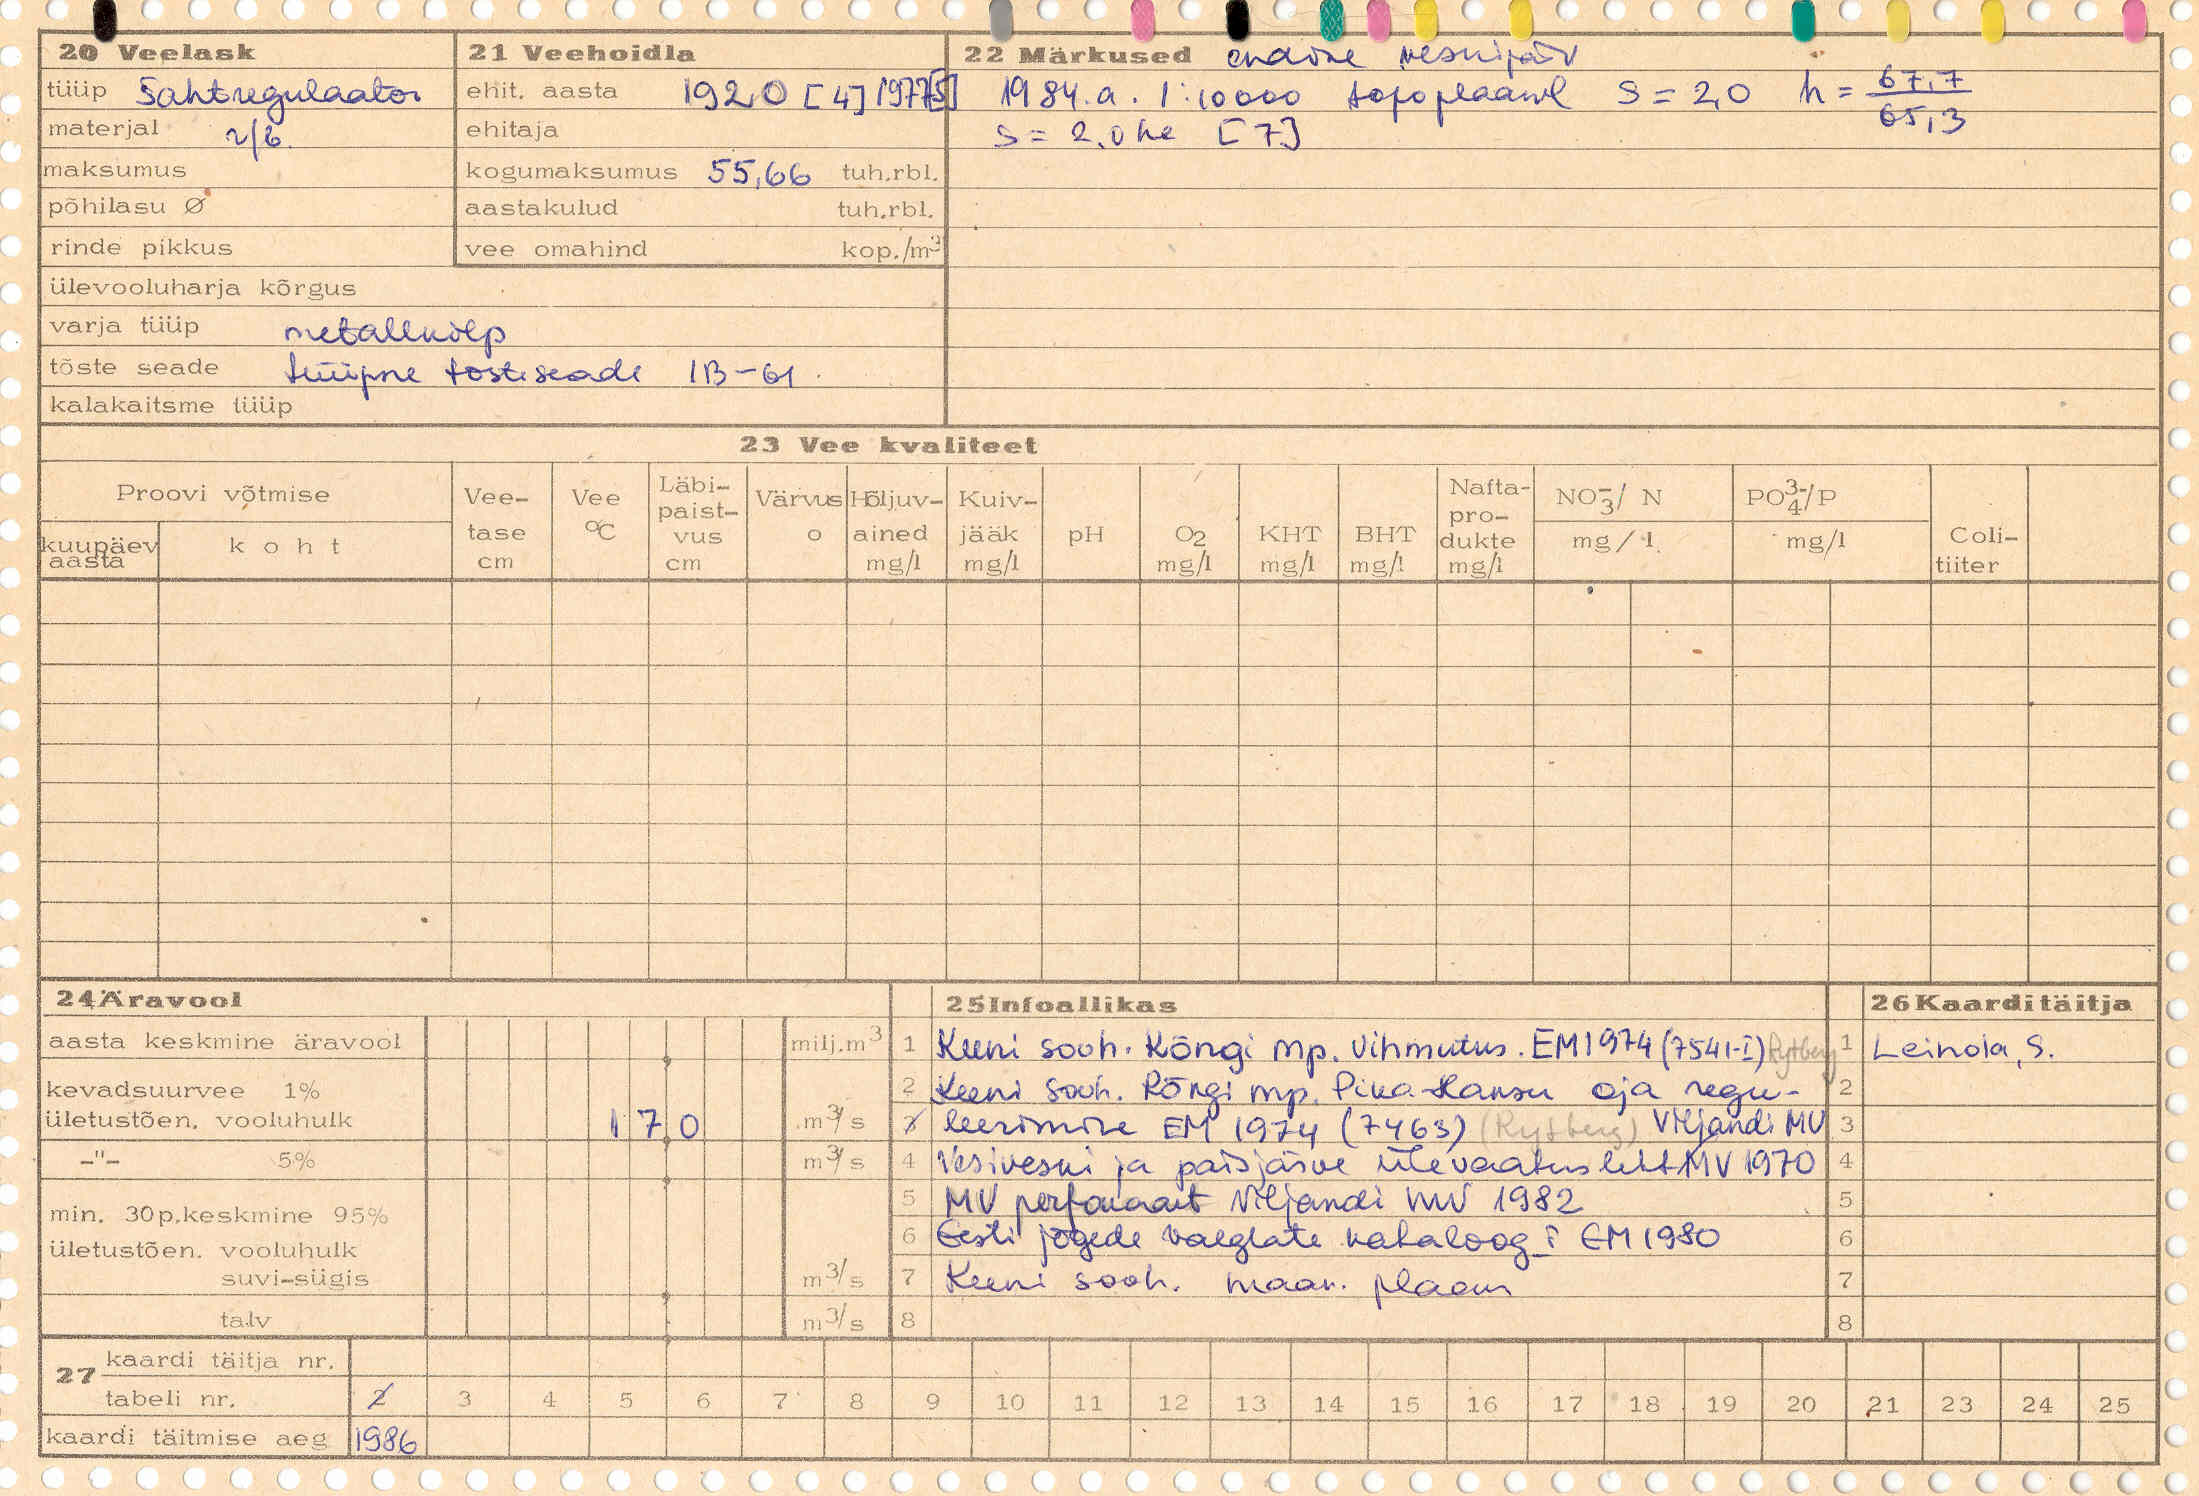 20 Veelask
tüüp Šahtregulaator
materjal r/b.
maksumus
põhilasu Ø
rinde pikkus
ülevooluharja kõrgus
varja tüüp metallkilp
tõste seade tüüpne tõsteseade IB-61.
kalakaitsme tüüp
21 Veehoidla
ehit. aasta 1920 [4] 1977[5]
ehitaja
kogumaksumus 55,66 tuh.rbl.
aastakulud tuh.rbl.
vee omahind kop./m³
22 Märkused endine veskijärv
1984.a. 1:10000 topoplaanil S = 2,0 h = 67,7/65,3
S = 2,0 ha [7]
23 Vee kvaliteet
Proovi võtmise
kuupäev aasta
koht
Vee-tase cm
Vee °C
Läbi-paist-vus cm
Värvus o
Hõljuv-ained mg/l
Kuiv-jääk mg/l
pH
O2 mg/l
KHT mg/l
BHT mg/l
Nafta-pro-dukte mg/l
NO3-/ N mg/l
PO4 3-/P mg/l
Coli-tiiter
24 Äravool
aasta keskmine äravool milj.m³
kevadsuurvee 1%
ületustõen. vooluhulk 170 m³/s
-"- 5% m³/s
min. 30p.keskmine 95%
ületustõen. vooluhulk
suvi-sügis m³/s
talv m³/s
25 Infoallikas
1 Keeni sovh. Kõngi mp. vihmutus. EM 1974 (7541-I) Rytberg
2 Keeni sovh. Rõngi mp. Pika-Hansu oja regu-
3 leerimine EM 1974 (7463) (Rytberg) Viljandi MV
4 Vesiveski ja paisjärve ülevaatusleht MV 1970
5 MV perfokaart Viljandi MV 1982
6 Eesti jõgede valglate kataloog I EM 1980
7 Keeni sovh. maak. plaan
8
26 Kaarditäitja
1 Leinola, S.
2
3
4
5
6
7
8
27 kaardi täitja nr.
tabeli nr. 2 3 4 5 6 7 8 9 10 11 12 13 14 15 16 17 18 19 20 21 23 24 25
kaardi täitmise aeg 1986